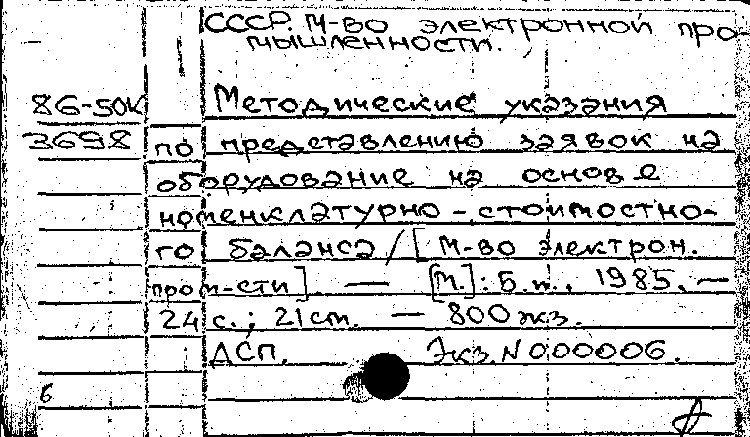 СССР. М-во электронной про-
мышленности.
86-50К
3698
Методические указания
по представлению заявок на
оборудование на основе
номенклатурно-стоимостно-
го баланса / [М-во электрон.
пром-сти]. — [М.]: Б.и., 1985. —
24 с.; 21 см. — 800 экз.
ДСП. Экз. N 000006.
6